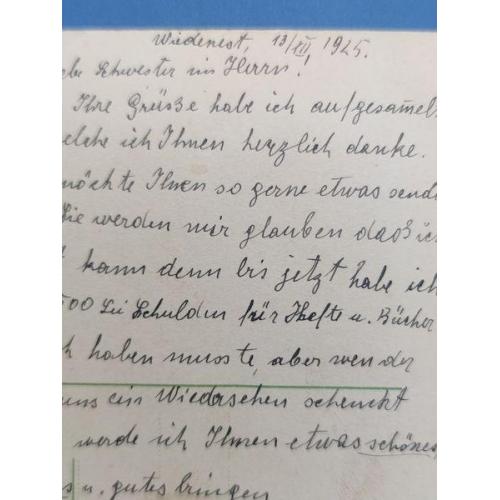 Wiedenest, 13/XII 1925.
Schwester im Herrn!
Ihre Grüße habe ich aufgesam̄elt
elche ich Ihnen herzlich danke.
möchte Ihnen so gerne etwas sende
Sie werden mir glauben daß ich
kann denn bis jetzt habe ich
500 Lei Schulden für Hefte u. Bücher
h haben musste, aber wen der
uns ein Wiedersehen schenckt
werde ich Ihnen etwas schönes
s u. gutes bringen